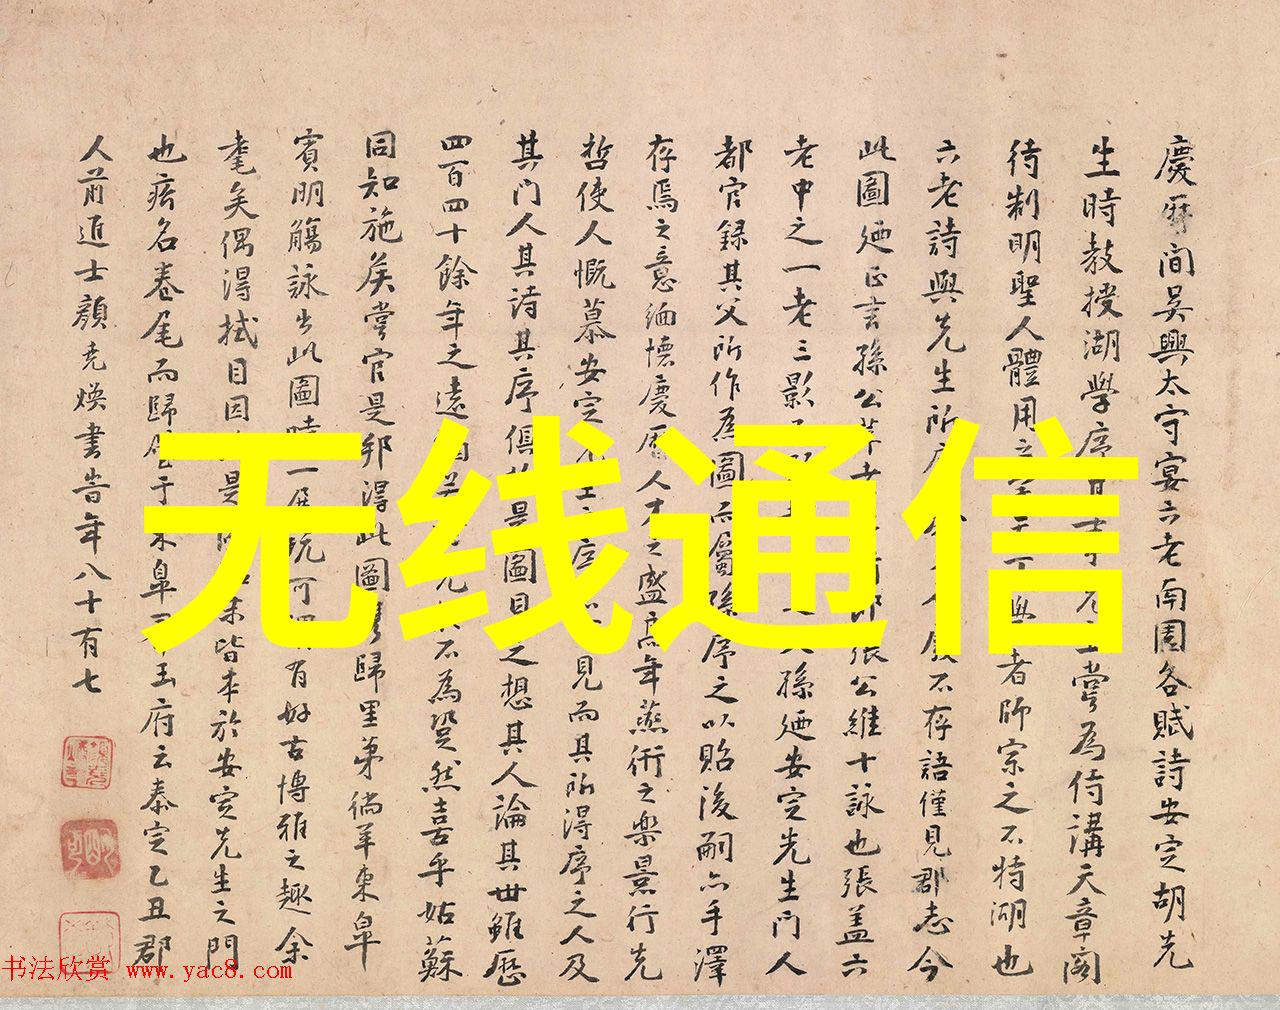 慶曆間吳興太守宴六老南園各賦詩安定胡先
生時教授湖學序其嘗為侍講天章閣
待制明聖人體用之者師宗之不特湖也
六老詩與先生所不存語僅見郡志今
此圖迺正言孫公張公維十詠也張蓋六
老中之一老三影孫迺安定先生門人
都官錄其父所作為圖而屬孫序之以貽後嗣亦手澤
存焉之意緬懷慶曆人才之盛年燕衎之樂景行先
哲使人慨慕安定見而其所得序之人及
其門人其詩其序俱是圖目之想其人論其世雖歷
四百四十餘年之遠不為然喜乎姑蘇
同知施矦嘗官是邦得此圖歸里第徜羊東皐
賓明觴詠出此圖時一展玩可有好古博雅之趣余
耄矣偶得拭目因是皆本於安定先生之門
也疥名卷尾而歸于東皐王府云泰定乙丑郡
人前進士顏堯煥書告年八十有七
无线通信
书法欣赏 www.yac8.com